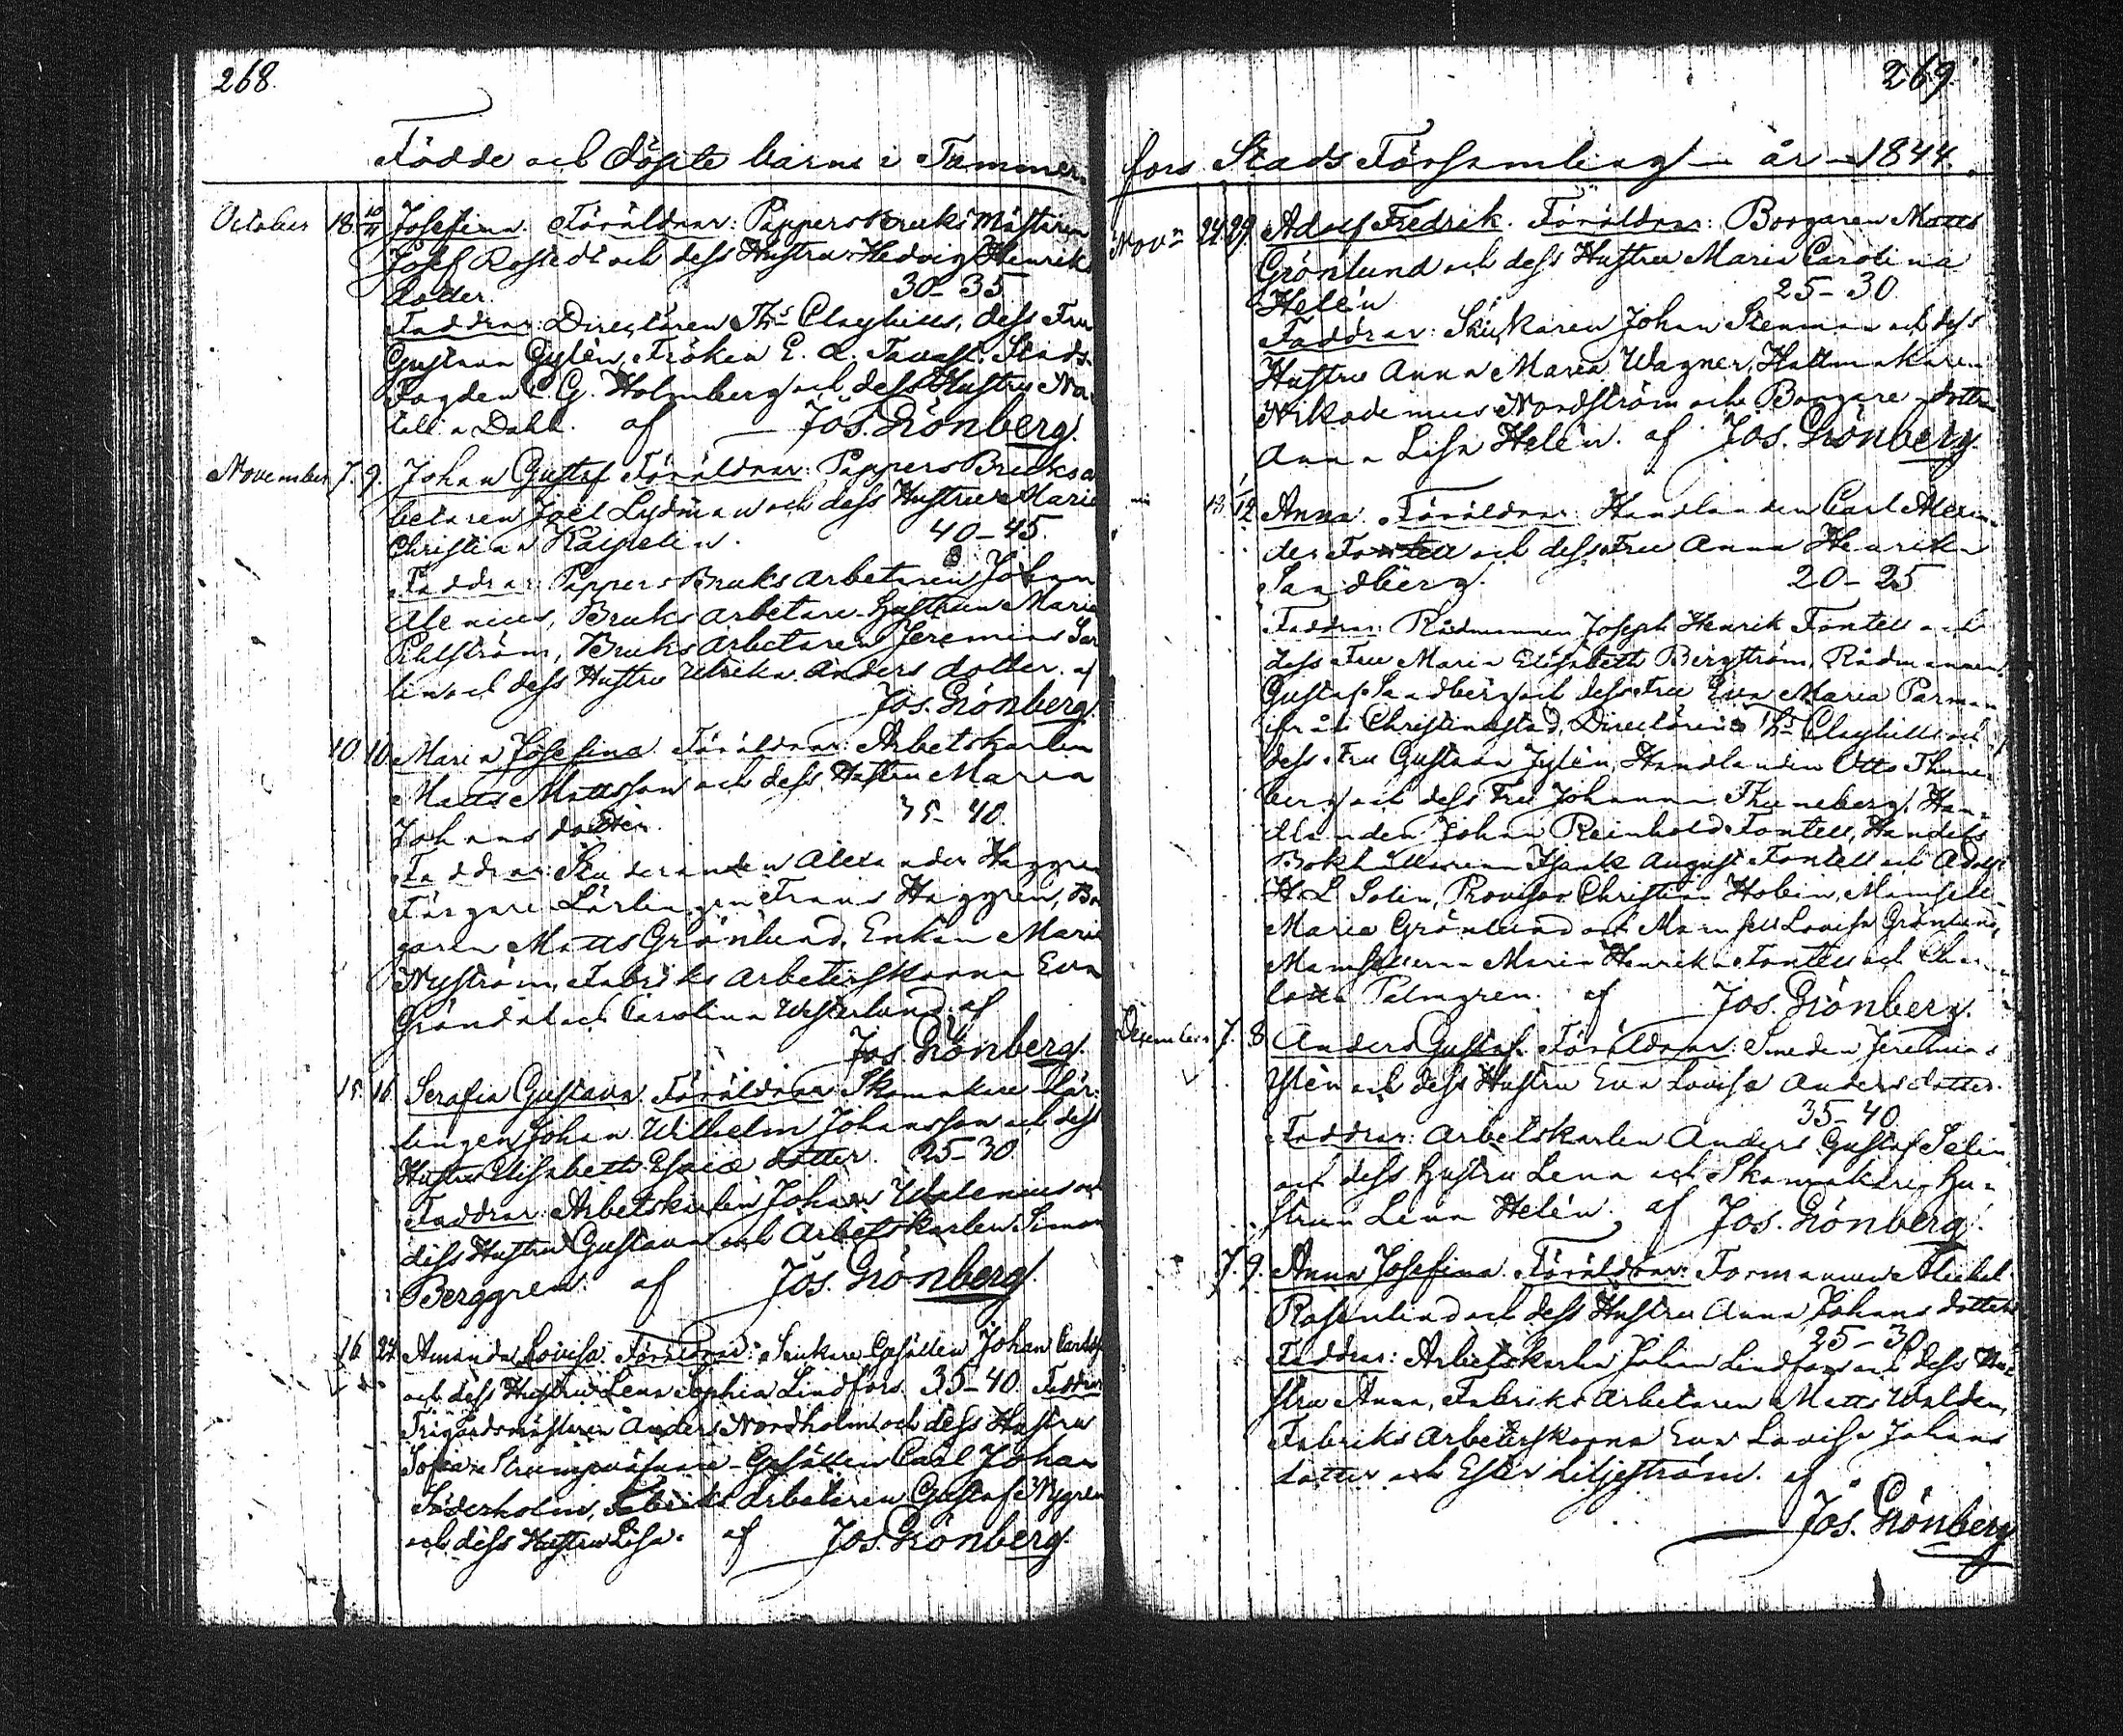 268.
Födde och döpte barn i Tammer-
October 18. 10/11 Josefina. Föräldrar: Pappersbruks Mästaren
Josef Rostedt och dess Hustru Hedvig Henriks
dotter. 30-35
Faddrar: Directören Ths Clayhills, dess Fru
Gustava Gylén, Fröken E. A. Tavast. Stads-
Fogden C. G. Holmberg och dess Hustru Na-
talia Dahl. af Jos. Grönberg.
November 7. 9. Johan Gustaf. Föräldrar: Pappers Bruksar
betaren Joel Lydman och dess Hustru Maria
Christina 40-45.
Faddrar: Pappers Bruks arbetaren Johan
Alenius, Bruks arbetare-hustrun Maria
Pihlström, Bruks arbetaren Jeremias Sar
lin och dess Hustru Ulrika Anders dotter. af
Jos. Grönberg.
10. 10. Maria Josefina. Föräldrar: Arbetskarlen
Matts Mattsson och dess Hustru Maria
Johans dotter. 35-40.
Faddrar: Studeranden Alexander Häggren
Färgare Lärlingen Frans Häggren, Bor
garen Matts Grönlund, Enkan Maria
Nyström, Fabriks arbeterskorna Eva
Gröndal och Carolina Westerlund. af
Jos. Grönberg.
15. 16. Serafia Gustava. Föräldrar: Skomakare Lär-
lingen Johan Wilhelm Johansson och dess
Hustru Elisabeth Esaiæ dotter. 25-30
Faddrar: Arbetskarlen Johan Walenius och
dess Hustru Gustava och Arbetskarlen Simon
Berggren. af Jos. Grönberg.
16. 24. Amanda Lovisa. Föräldrar: Snickare Gesällen Johan Carlsson
och dess Hustru Lena Sophia Lindfors. 35-40. Faddrar
Trägårdsmästaren Anders Nordholm och dess Hustru
Sofia, Strumpväfvare-Gesällen Carl Johan
Söderholm, Fabriks arbetaren Gustaf Nygren
och dess Hustru Lisa. af Jos. Grönberg.
269.
fors Stads Församling år 1844.
Novr 24. 29. Adolf Fredrik. Föräldrar: Borgaren Matts
Grönlund och dess Hustru Maria Carolina
Helén 25-30.
Faddrar: Snickaren Johan Stenman och dess
Hustru Anna Maria Wagner, Hattmakaren
Nikodemus Nordström och Borgare-dottren
Anna Lisa Helén. af Jos. Grönberg.
13. 1/12 Anna. Föräldrar: Handlanden Carl Alexan-
der Fontell och dess Fru Anna Henrika
Sandberg. 20-25
Faddrar: Rådmannen Joseph Henrik Fontell och
dess Fru Maria Elisabeth Bergström, Rådmannen
Gustaf Sandberg och dess Fru Eva Maria Parman
ifrån Christinestad, Directören Ths Clayhills och
dess Fru Gustava Jylén, Handlanden Otto Thune-
berg och dess Fru Johanna Thuneberg, Han-
dlanden Johan Reinhold Fontell, Handels
Bokhållaren Isaak August Fontell och Adolf
H. L. Solin, Provisor Christian Hobin, Mamsell
Maria Grönlund och Mamsell Lovisa Grönlund,
Mamsellerna Maria Henrika Fontell och Char-
lotta Palmgren. af Jos. Grönberg.
December 7. 8. Anders Gustaf. Föräldrar: Smeden Jeremias
Ysten och dess Hustru Eva Lovisa Anders dotter.
35-40
Faddrar: Arbetskarlen Anders Gustaf Selin
och dess Hustru Lena och Skomakare-hu-
strun Lena Helén. af Jos. Grönberg.
7. 9. Anna Josefina. Föräldrar: Formannen Michel
Rosenlind och dess Hustru Anna Johans dotter
25-30
Faddrar: Arbetskarlen Johan Lindfors och dess Hu-
stru Anna, Fabriks Arbetaren Matts Walden,
Fabriks Arbeterskorna Eva Lovisa Johans
dotter och Ester Liljeström. af
Jos. Grönberg